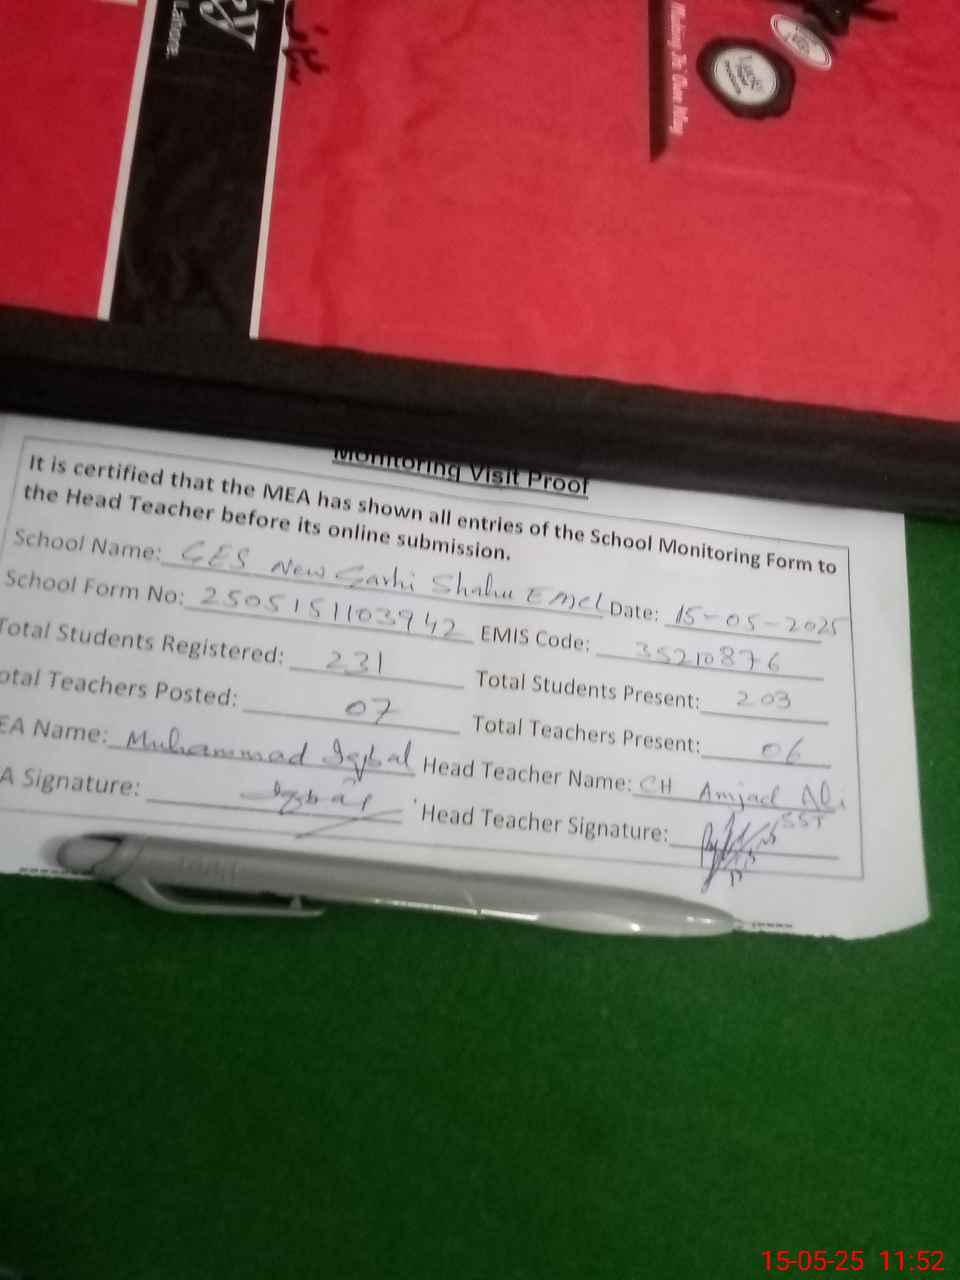 Lahore.
Making Its Own Way
Monitoring Visit Proof
It is certified that the MEA has shown all entries of the School Monitoring Form to
the Head Teacher before its online submission.
School Name: GES New Garhi Shahu EMCL Date: 15-05-2025
School Form No: 2505151103942 EMIS Code: 35210876
Total Students Registered: 231 Total Students Present: 203
otal Teachers Posted: 07 Total Teachers Present: 06
EA Name: Muhammad Iqbal Head Teacher Name: CH Amjad Ali
A Signature: Iqbal Head Teacher Signature: SST
15-05-25 11:52